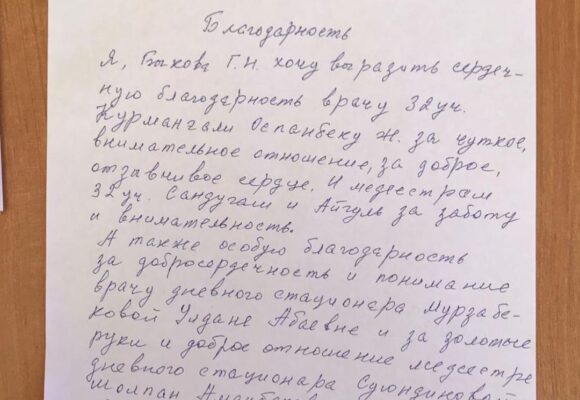 Благодарность
Я, Быкова Г.Н. хочу выразить сердеч-
ную благодарность врачу 32 уч.
Курмангали Оспанбеку Ж. за чуткое,
внимательное отношение, за доброе,
отзывчивое сердце. И медсестрам
32 уч. Сандугаш и Айгуль за заботу
и внимательность.
А также особую благодарность
за добросердечность и понимание
врачу дневного стационара Мурзабе-
ковой Улдане Абаевне и за золотые
руки и доброе отношение медсестре
дневного стационара Суюндиковой
Шолпан